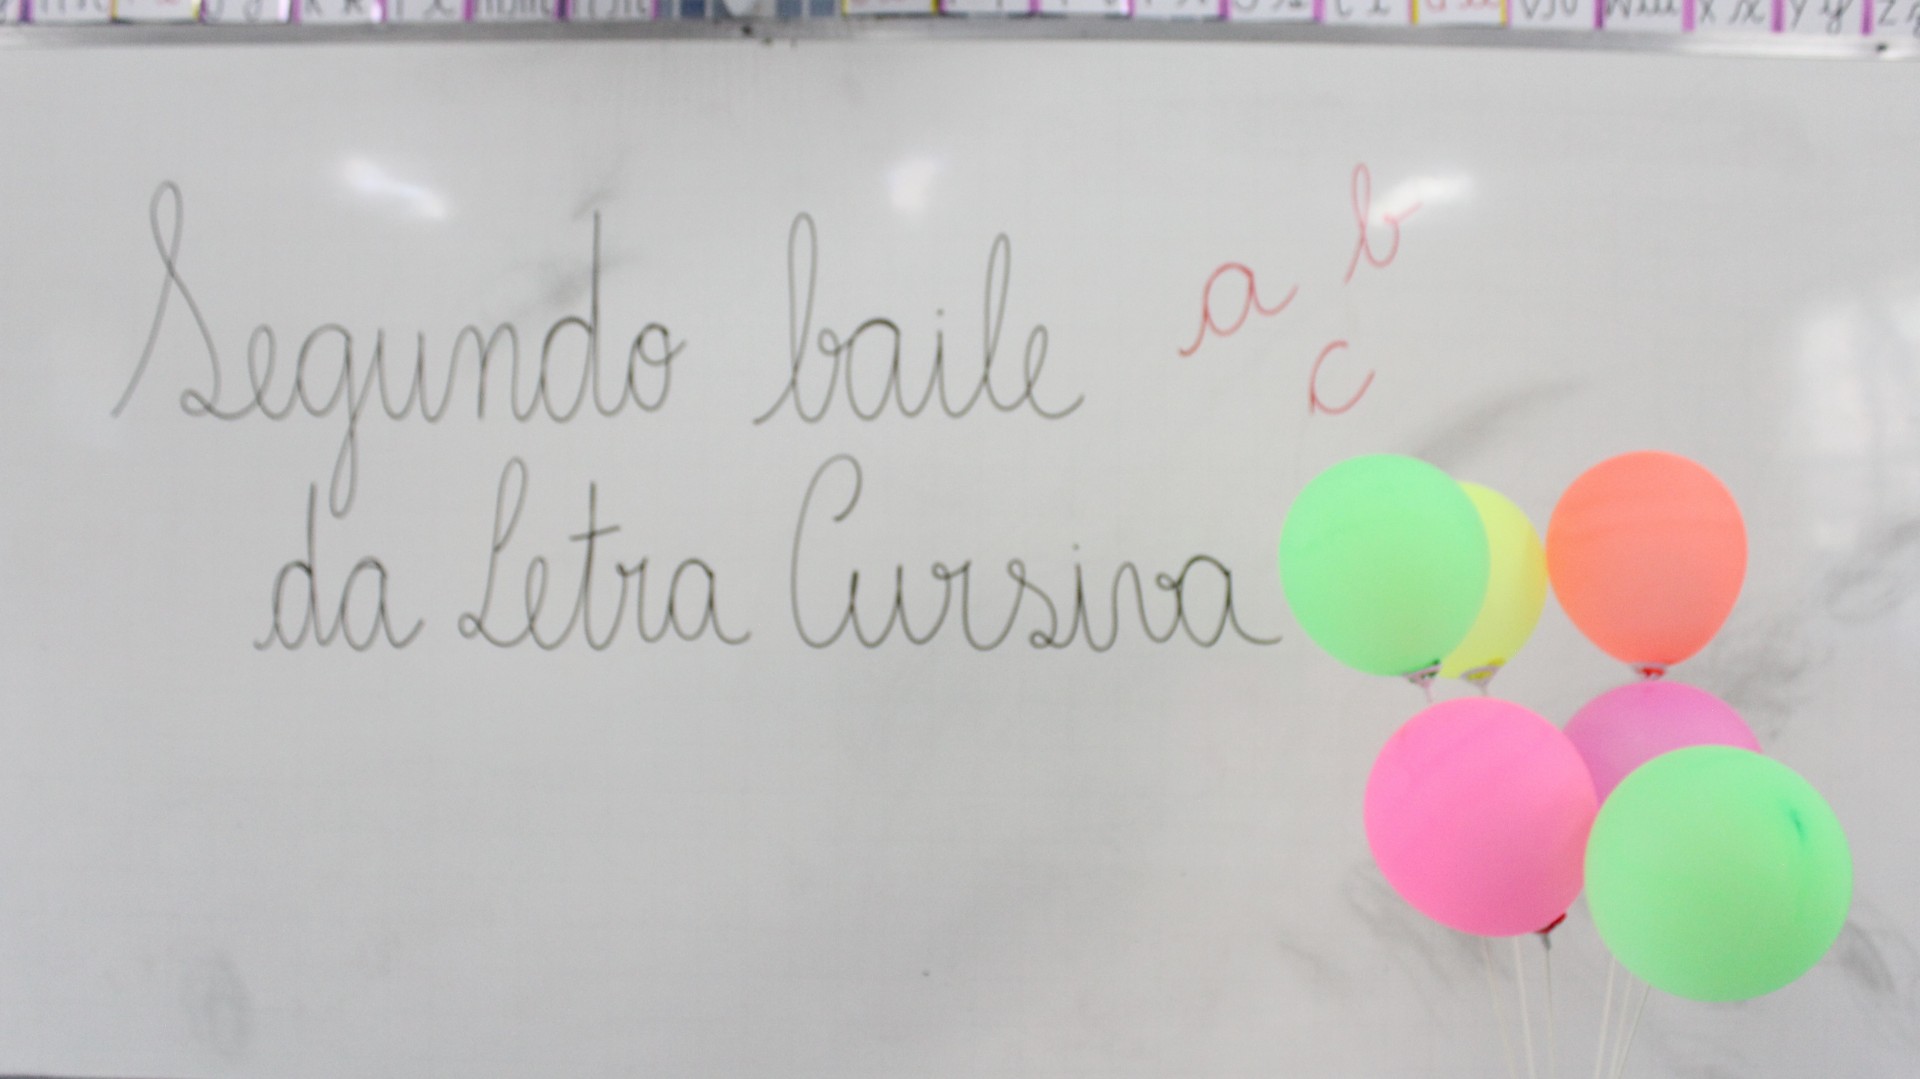 Segundo baile
da Letra Cursiva
a b
c